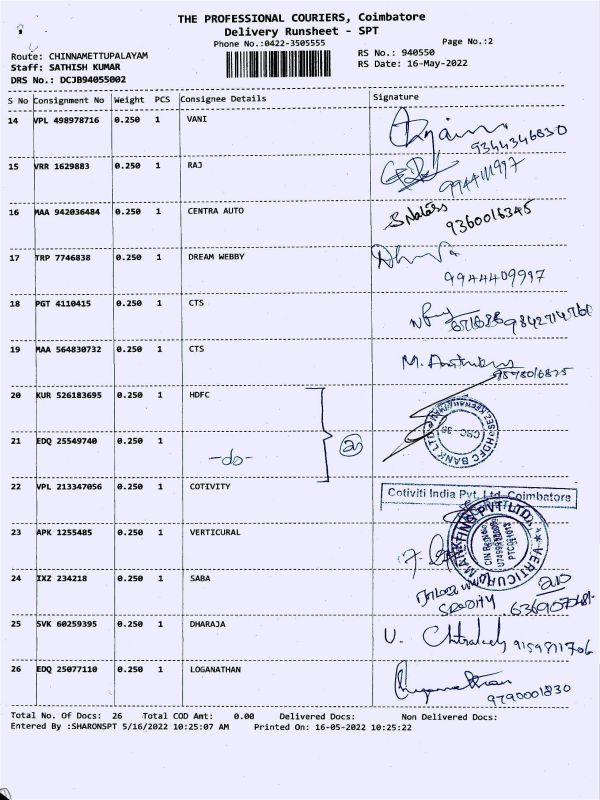 THE PROFESSIONAL COURIERS, Coimbatore
Delivery Runsheet - SPT
Phone No.:0422-3505555
Page No.:2
Route: CHINNAMETTUPALAYAM
RS No.: 940550
Staff: SATHISH KUMAR
RS Date: 16-May-2022
DRS No.: DCJB94055002
S No Consignment No Weight PCS Consignee Details Signature
14 VPL 498978716 0.250 1 VANI
9344346830
15 VRR 1629883 0.250 1 RAJ
9944111997
16 MAA 942036484 0.250 1 CENTRA AUTO
9360016345
17 TRP 7746838 0.250 1 DREAM WEBBY
9944409997
18 PGT 4110415 0.250 1 CTS
19 MAA 564830732 0.250 1 CTS
M.
20 KUR 526183695 0.250 1 HDFC
HDFC BANK LTD
21 EDQ 25549740 0.250 1
-do-
22 VPL 213347056 0.250 1 COTIVITY
Cotiviti India Pvt. Ltd. Coimbatore
23 APK 1255485 0.250 1 VERTICURAL
MARKETING PVT LTD.
24 IXZ 234218 0.250 1 SABA
25 SVK 60259395 0.250 1 DHARAJA
U. 9159811706
26 EDQ 25077110 0.250 1 LOGANATHAN
9790001830
Total No. Of Docs: 26 Total COD Amt: 0.00 Delivered Docs: Non Delivered Docs:
Entered By :SHARONSPT 5/16/2022 10:25:07 AM Printed On: 16-05-2022 10:25:22